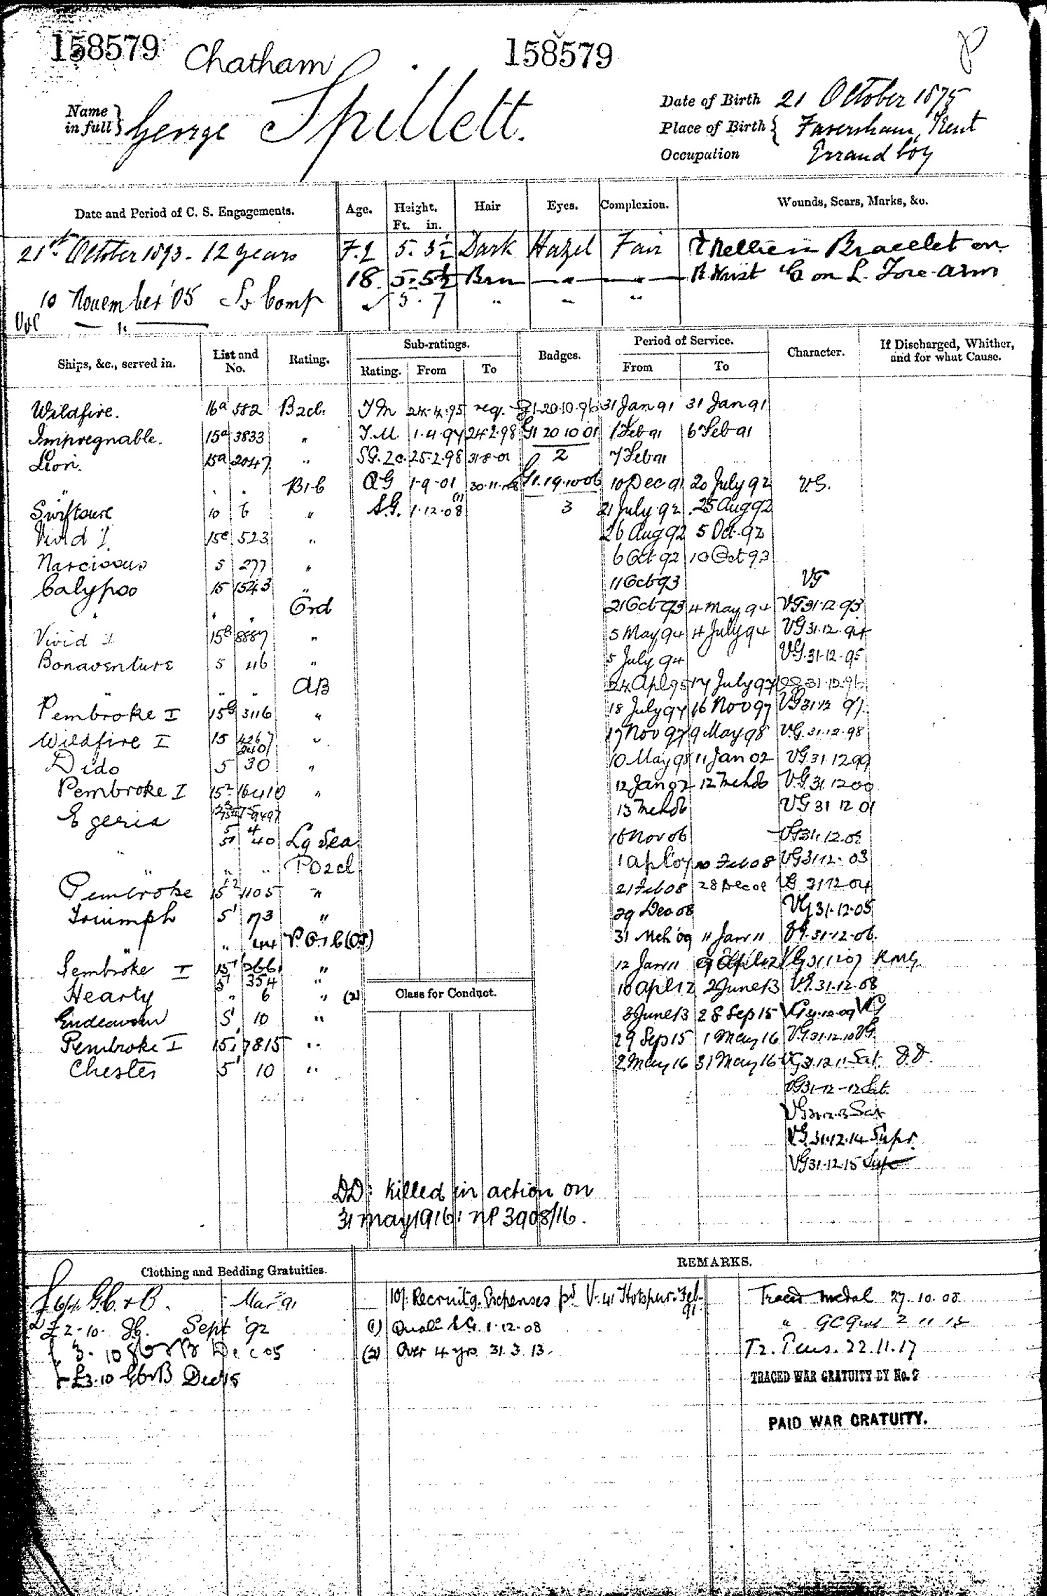 158579 Chatham 158579 P
Name in full George Spillett.
Date of Birth 21 October 1875
Place of Birth Faversham, Kent
Occupation Errand boy
Date and Period of C. S. Engagements. Age. Height. Ft. in. Hair Eyes. Complexion. Wounds, Scars, Marks, &c.
21st October 1893 - 12 years 5. 3½ Dark Hazel Fair Bracelet on
18. 5. 5½ Brn — — R Wrist on L. Fore-arm
10 November '05 To Comp 5. 7 " " "
Ships, &c., served in. List and No. Rating. Sub-ratings. Rating. From To Badges. Period of Service. From To Character. If Discharged, Whither, and for what Cause.
Wildfire. 16a 582 B2cl. T M 24.4.95 req. G1.20.10.96 31 Jan 91 31 Jan 91
Impregnable. 15a 3833 " T.M. 1.4.97 24.2.98 G1 20 10 01 1 Feb 91 6 Feb 91
Lion. 15a 2047 " S.G. 25.2.98 31.8.01 2 7 Feb 91
" " B1C QG 1.9.01 30.11.08 G1.19.10.06 10 Dec 91 20 July 92 V.G.
Swiftsure 10 6 " S.G. 1.12.08 (1) 3 21 July 92 25 Aug 92
Vivid I 15c 523 " 26 Aug 92 5 Oct 92
Narcissus 5 277 " 6 Oct 92 10 Oct 93
Calypso 15 1543 " 11 Oct 93 VG
" " Ord 21 Oct 93 4 May 94 VG 31.12.93
Vivid I 15B 8887 " 5 May 94 4 July 94 VG 31.12.94
Bonaventure 5 46 " 5 July 94 VG 31.12.95
" " AB 24 Apl 95 17 July 97 31.12.96
Pembroke I 15G 3116 " 18 July 97 16 Nov 97 VG 31 12 97
Wildfire I 15 " 17 Nov 97 9 May 98 VG. 31.12.98
Dido 5 30 " 10 May 98 11 Jan 02 VG 31.12 99
Pembroke I 15.2 16410 " 12 Jan 02 12 Mch 06 V.G. 31 12 00
Egeria 13 Mch 06 VG 31 12 01
40 Lg Sea 16 Nov 06 VG 31.12.02
" " PO2cl 1 Apl 07 20 Feb 08 VG 31.12.03
Pembroke 15.2 1105 " 21 Feb 08 28 Dec 08 VG 31.12.04
Triumph 5' 173 " 29 Dec 08 VG 31.12.05
" P.O.1C (O.S.) 31 Mch 09 11 Jan 11 VG. 31.12.06
Pembroke I 15' " 12 Jan 11 VG 31.12.07 R.M.G
Hearty " 6 " (2) Class for Conduct. 10 Apl 12 2 June 13 V.G. 31.12.08
Endeavour 5' 10 " 3 June 13 28 Sep 15 VG 31.12.09 VG
Pembroke I 15 7815 " 29 Sep 15 1 May 16 VG. 31.12.10 VG.
Chester 5' 10 " 2 May 16 31 May 16 VG 31.12.11 Sat D.D.
VG 31-12-12 Sat.
VG 31.12.13 Sat
VG. 31.12.14 Supr.
VG 31.12.15 Sup
DD: Killed in action on
31 May 1916: NP 3908/16.
Clothing and Bedding Gratuities. REMARKS.
G.C. & B. Mar 91 10/. Recruitg. Expenses pd V. 41 Hotspur. Feb 91. Traced medal 27.10.08
£2-10. Sept '92 (1) Quald S.G. 1.12.08 " GC Grat 2 11 12
3.10 Dec 05 (2) Over 4 yrs 31.3.13. Tr. Pens. 22.11.17
£3.10 G&B Dec 15 TRACED WAR GRATUITY BY No. 2
PAID WAR GRATUITY.